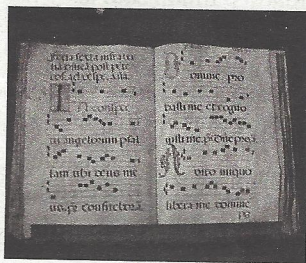 sexta infra
post
ad
IN conspec
tu angelorum psal
lam tibi deus me
us. ps. Confitebor
Domine pro
basti me et cogno
visti me. ps. Domine proba
A viro iniquo
libera me domine
ps